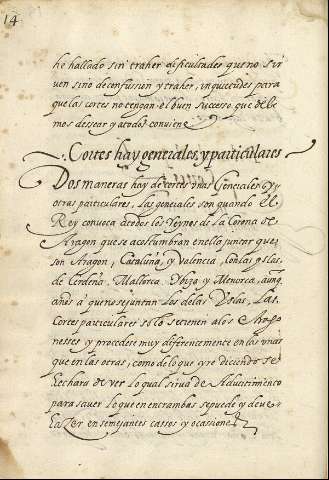 14
he hallado sin traher dificultades que no sir
uen sino de confussion y traher, inquietudes para
que las cortes no tengan el buen successo que debe
mos dessear y a todos conuiene
Cortes hay generales, y particulares
Dos maneras hay de cortes vnas Generales y
otras particulares, Las generales son quando El
Rey conuoca a todos los Reynos de La Corona de
Aragon que se acostumbran en ello juntar que
son Aragon, Cataluña, y Valencia, Con las yslas,
de Cerdeña, Mallorca Ybiza y Menorca, aunq
se juntan Los de las yslas, Las
Cortes particulares solo se tienen a los Arago
nesses y procedese muy diferentemente en las vnas
que en las otras, como de lo que yre diciendo se
hechara de ver lo qual sirua de Aduertimento
para sauer lo que en entrambas se puede y deue
hazer en semejantes cassos y ocassiones